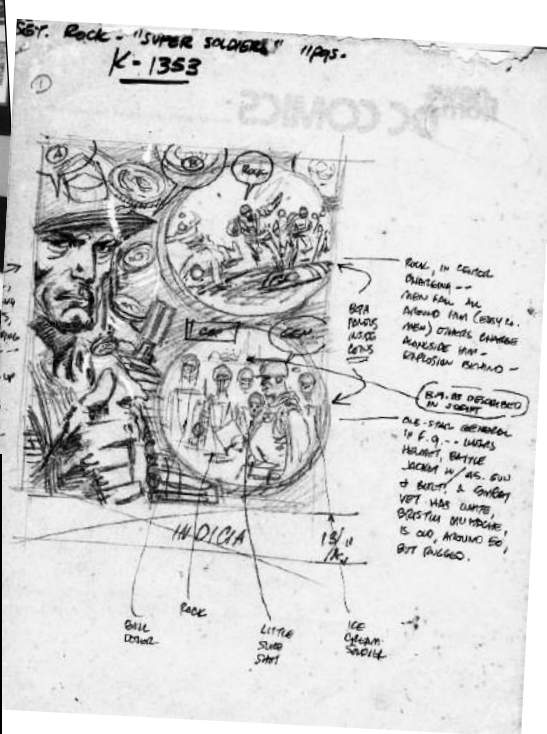 SGT. ROCK - "SUPER SOLDIERS" 11 pgs.
K-1353
1
DC COMICS
A
B
ROCK
CAP
GEN
ROCK, IN CENTER
CHARGING --
MEN FALL ALL
AROUND HIM (EASY CO.
MEN) OTHERS CHARGE
ALONGSIDE HIM -
EXPLOSION BEHIND -
B & A
PANELS
INSIDE
COINS
B.G. AS DESCRIBED
IN SCRIPT
ONE-STAR GENERAL
IN F.G. -- WEARS
HELMET, BATTLE
JACKET W/
& BUT IS A
VET HAS WHITE,
MUSTACHE,
IS OLD, AROUND 50,
BUT RUGGED.
UP
INDICIA
BULL
DOZER
ROCK
LITTLE
SURE
SHOT
ICE
CREAM
SOLDIER